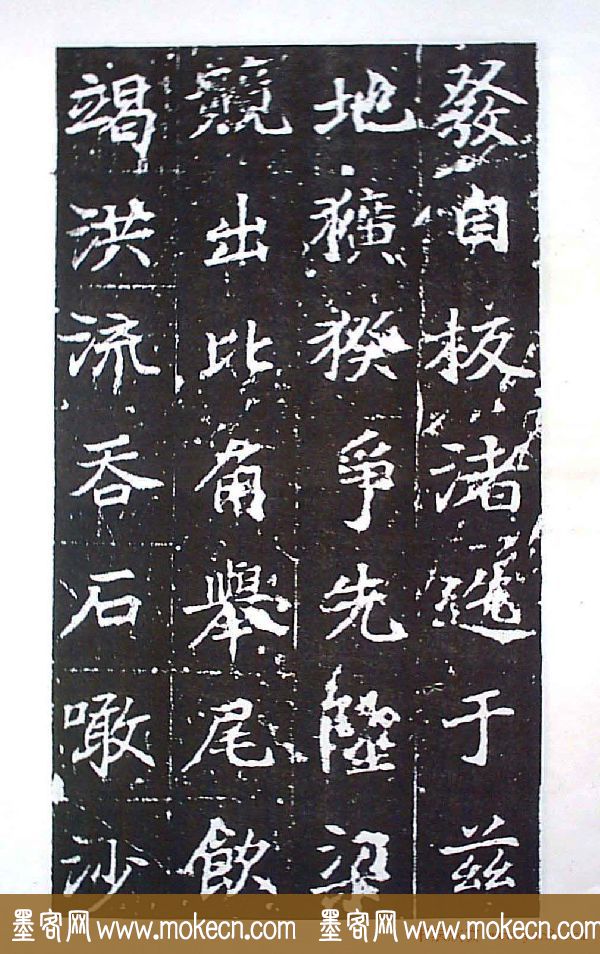 發自板渚于茲
地獷爭先陸梁
競出比角舉尾飲
竭洪流吞石噉沙
墨客网 www.mokecn.com 墨客网 www.mokecn.com